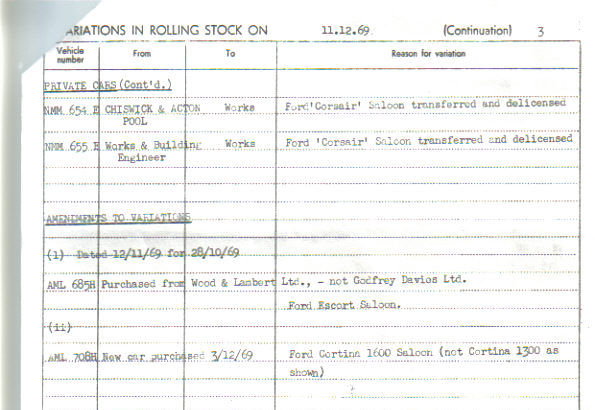 VARIATIONS IN ROLLING STOCK ON 11.12.69 (Continuation) 3
Vehicle number From To Reason for variation
PRIVATE CARS (Cont'd.)
NMM 654 E CHISWICK & ACTON Works Ford 'Corsair' Saloon transferred and delicensed
POOL
NMM 655 E Works & Building Works Ford 'Corsair' Saloon transferred and delicensed
Engineer
AMENDMENTS TO VARIATIONS
(i) Dated 12/11/69 for 28/10/69
AML 685H Purchased from Wood & Lambert Ltd., - not Godfrey Davies Ltd.
Ford Escort Saloon.
(ii)
AML 708H New car purchased 3/12/69 Ford Cortina 1600 Saloon (not Cortina 1300 as
shown)